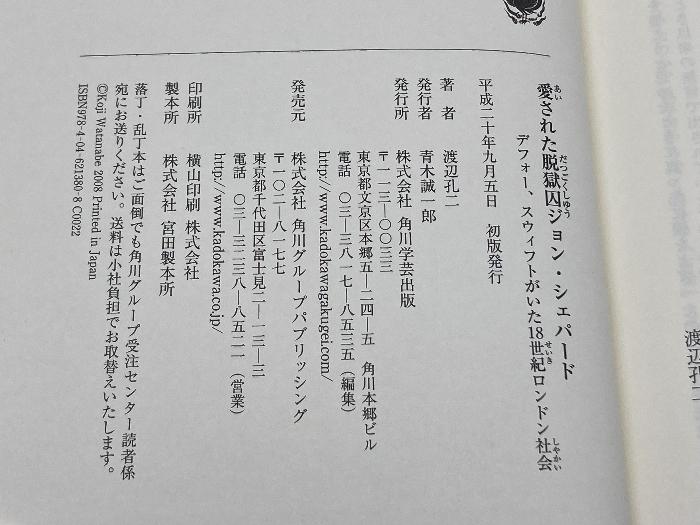 愛された脱獄囚ジョン・シェパード
デフォー、スウィフトがいた18世紀ロンドン社会
平成二十年九月五日　初版発行
著　者　渡辺孔二
発行者　青木誠一郎
発行所　株式会社 角川学芸出版
〒一一三―〇〇三三
東京都文京区本郷五―二四―五　角川本郷ビル
電話　〇三―三八一七―八五三五（編集）
http://www.kadokawagakugei.com/
発売元　株式会社 角川グループパブリッシング
〒一〇二―八一七七
東京都千代田区富士見二―一三―三
電話　〇三―三二三八―八五二一（営業）
http://www.kadokawa.co.jp/
印刷所　横山印刷 株式会社
製本所　株式会社 宮田製本所
落丁・乱丁本はご面倒でも角川グループ受注センター読者係
宛にお送りください。送料は小社負担でお取替えいたします。
©Koji Watanabe 2008 Printed in Japan
ISBN978-4-04-621380-8 C0022
渡辺孔二